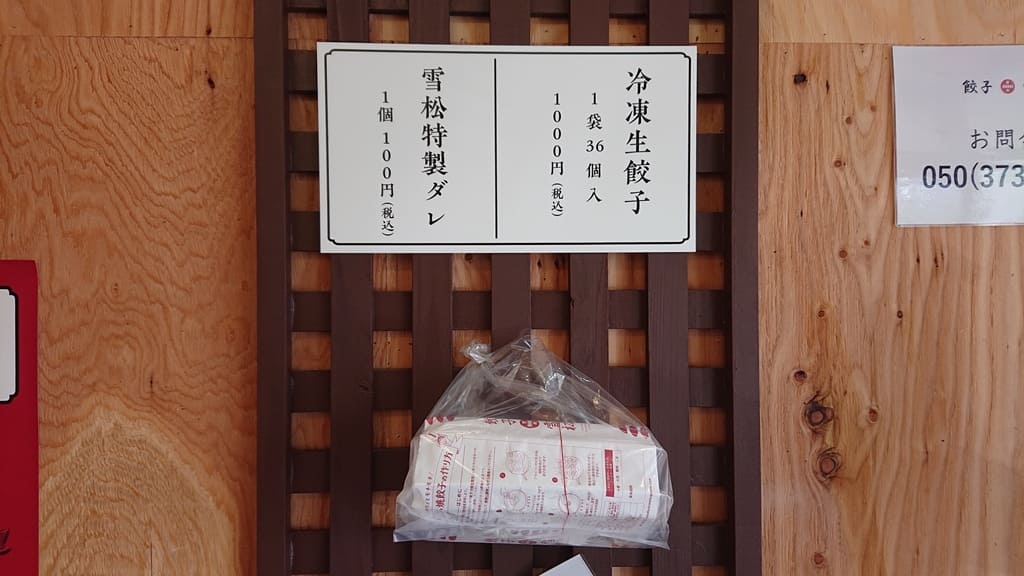 冷凍生餃子
1袋 36個入
1000円(税込)
雪松特製ダレ
1個 100円(税込)
餃子
お問
050(373
焼餃子の作り方